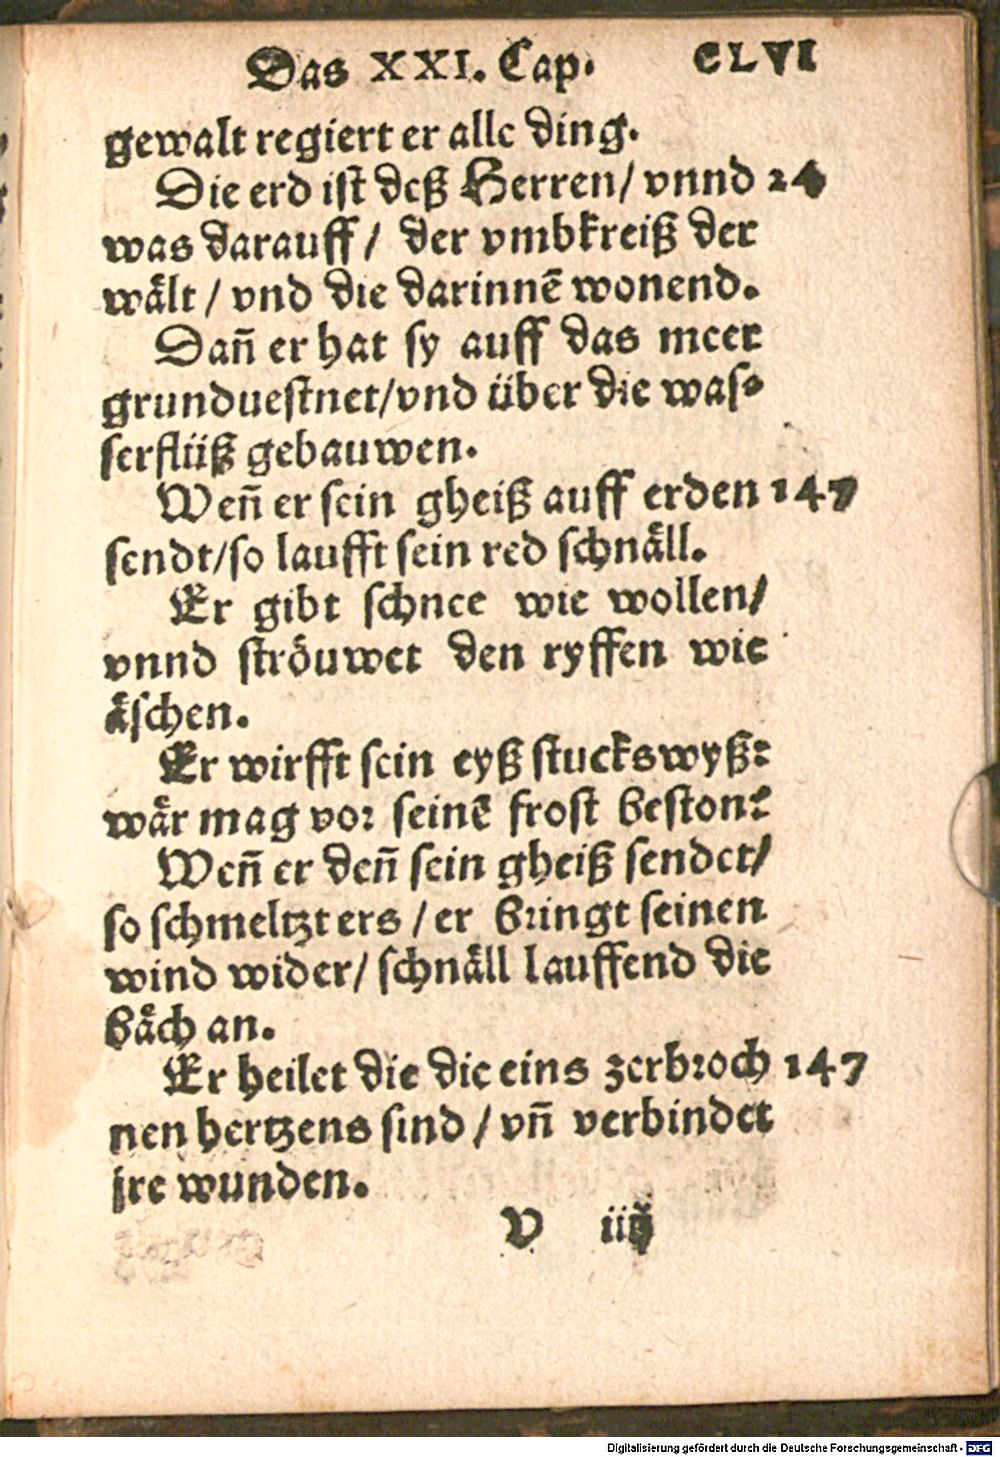 Das XXI. Cap. CLVI
gewalt regiert er alle ding.
Die erd ist deß Herren/ vnnd 24
was darauff/ der vmbkreiß der
wålt/ vnd die darinnē wonend.
Dañ er hat sy auff das meer
grunduestnet/vnd über die was-
serflüß gebauwen.
Weñ er sein gheiß auff erden 147
sendt/so laufft sein red schnåll.
Er gibt schnee wie wollen/
vnnd ströuwet den ryffen wie
åschen.
Er wirfft sein eyß stuckswyß:
wår mag vor seinē frost beston?
Weñ er deñ sein gheiß sendet/
so schmeltzt ers/er bringt seinen
wind wider/ schnåll lauffend die
båch an.
Er heilet die die eins zerbroch 147
nen hertzens sind/ vñ verbindet
jre wunden.
V iiij
Digitalisierung gefördert durch die Deutsche Forschungsgemeinschaft - DFG